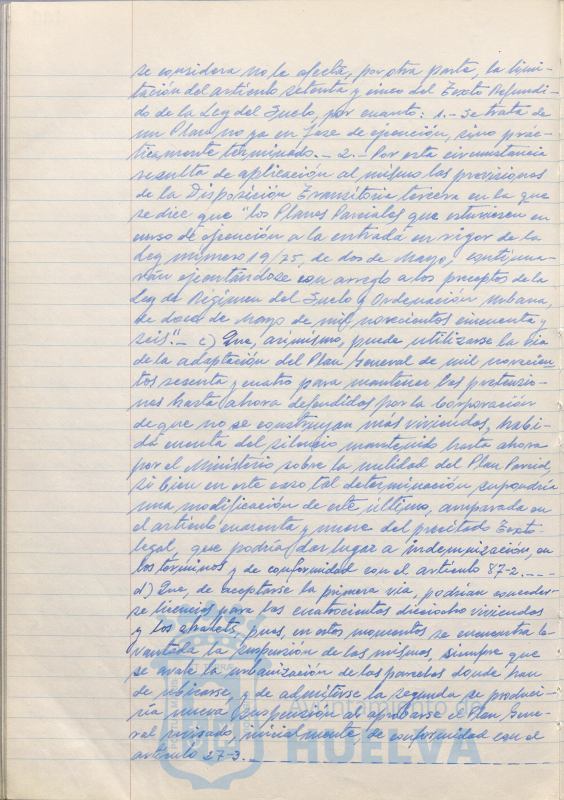 se considera no le afecta, por otra parte, la limi-
tación del artículo setenta y cinco del Texto Refundi-
do de la Ley del Suelo, por cuanto: 1.- Se trata de
un Plan no ya en fase de ejecución, sino prác-
ticamente terminado.- 2.- Por esta circunstancia
resulta de aplicación al mismo las previsiones
de la Disposición Transitoria tercera en la que
se dice que "los Planes Parciales que estuviesen en
curso de ejecución a la entrada en vigor de la
Ley número 19/75, de dos de Mayo, continua-
rán ejecutándose con arreglo a los preceptos de la
Ley de Régimen del Suelo y Ordenación Urbana,
de doce de Mayo de mil novecientos cincuenta y
seis".- c) Que, asimismo, puede utilizarse la vía
de la adaptación del Plan General de mil novecien-
tos sesenta y cuatro para mantener las pretensio-
nes hasta ahora defendidas por la Corporación
de que no se construyan más viviendas, habi-
da cuenta del silencio mantenido hasta ahora
por el Ministerio sobre la nulidad del Plan Parcial,
si bien en este caso tal determinación supondría
una modificación de este último, amparada en
el artículo cuarenta y nueve del precitado Texto
legal, que podría dar lugar a indemnización, en
los términos y de conformidad con el artículo 87-2.----
d) Que, de aceptarse la primera vía, podrían conceder-
se licencias para las cuatrocientas dieciocho viviendas
y los chalets, pues, en estos momentos se encuentra le-
vantada la suspensión de las mismas siempre que
se avale la urbanización de las parcelas donde han
de ubicarse, y de admitirse la segunda se produci-
ría nueva suspensión al aprobarse el Plan Gene-
ral revisado, inicialmente, de conformidad con el
artículo 27-3.
Ayuntamiento de
HUELVA